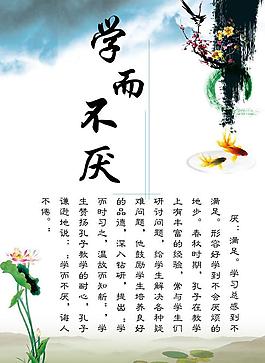 学而不厌
厌：满足。学习总感到不
满足。形容好学到不会厌烦的
地步。春秋时期，孔子在教学
上有丰富的经验，常与学生们
研讨问题，给学生解决各种疑
难问题，他鼓励学生培养良好
的品德，深入钻研，提出：学
而时习之，温故而知新"，学
生赞扬孔子教学的耐心，孔子
谦逊地说："学而不厌，诲人
不倦。"